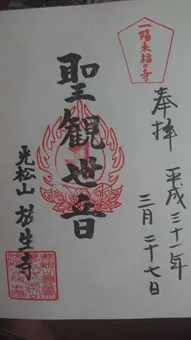 一陽来福の寺
奉拝
平成三十一年
三月二十七日
聖観世音
光松山 放生寺